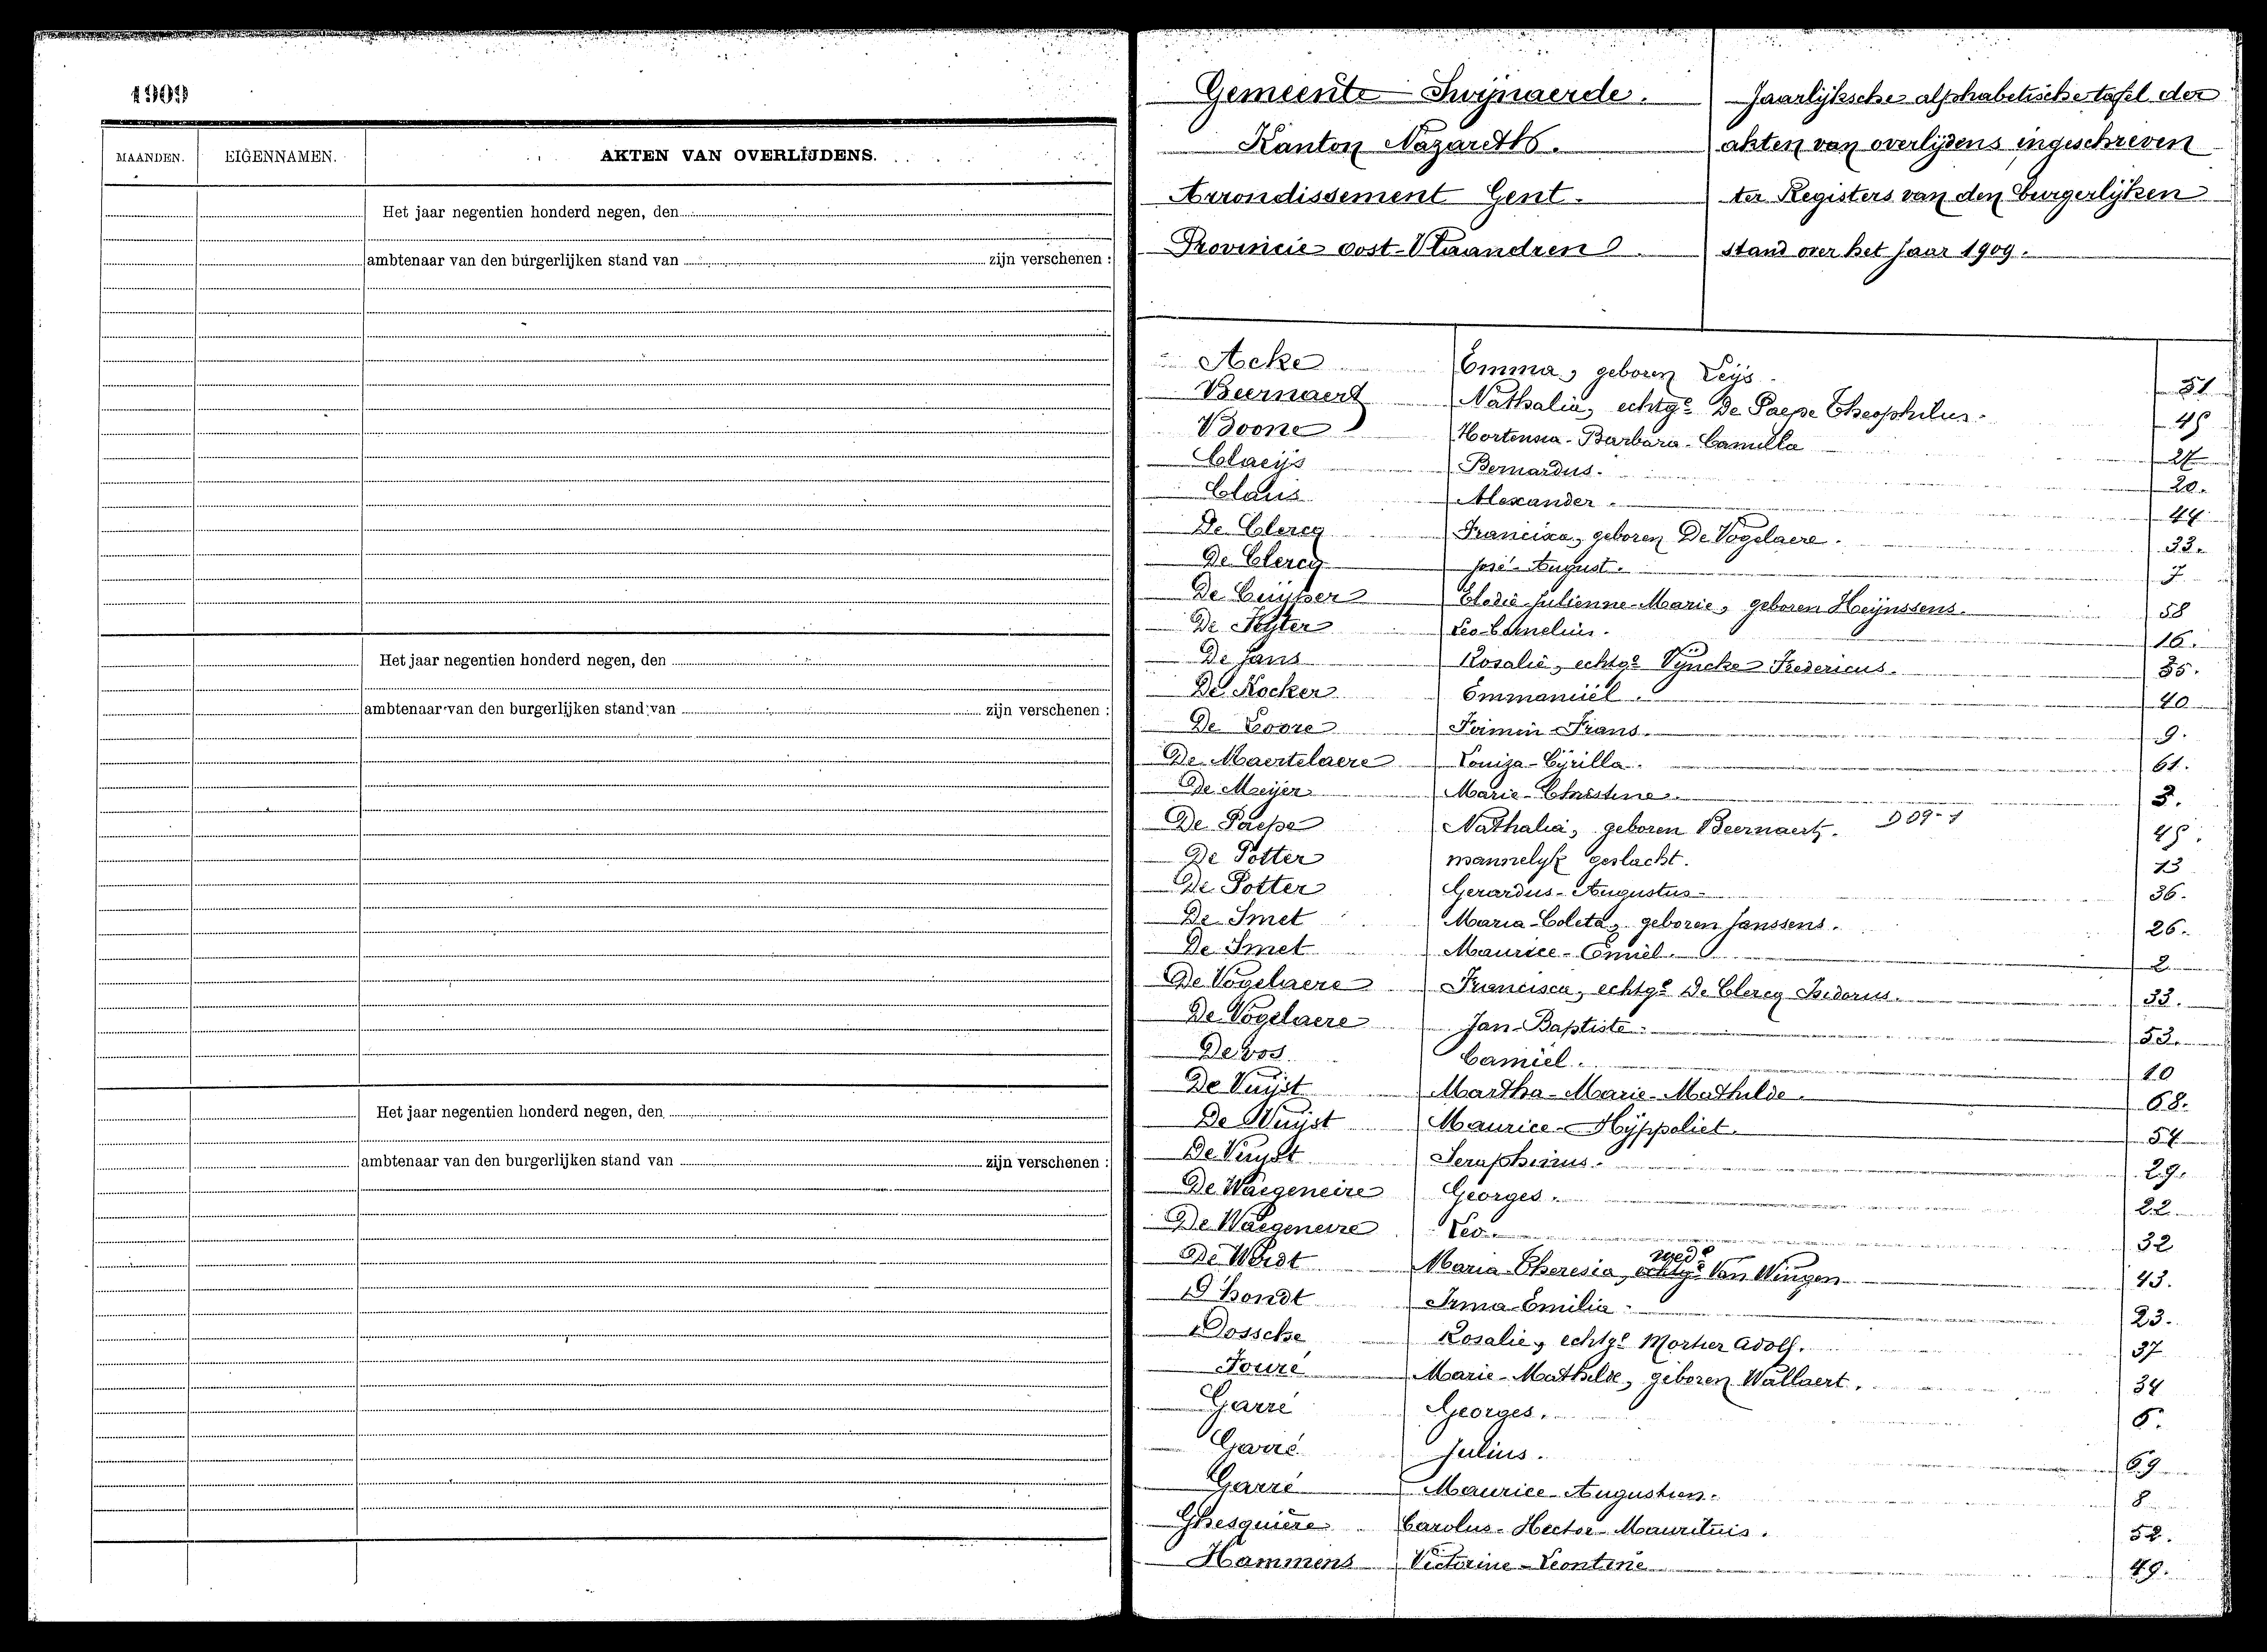 1909
MAANDEN. EIGENNAMEN. AKTEN VAN OVERLIJDENS.
Het jaar negentien honderd negen, den
ambtenaar van den burgerlijken stand van zijn verschenen :
Het jaar negentien honderd negen, den
ambtenaar van den burgerlijken stand van zijn verschenen :
Het jaar negentien honderd negen, den
ambtenaar van den burgerlijken stand van zijn verschenen :
Gemeente Swijnaerde.
Kanton Nazareth.
Arrondissement Gent.
Provincie oost-Vlaandren
Jaarlijksche alphabetische tafel der
akten van overlijdens ingeschreven
ter Registers van den burgerlijken
stand over het jaar 1909.
Acke Emma, geboren Leijs. 51
Beernaert Nathalia, echtge De Paepe Theophilus. 45
Boone Hortensia-Barbara-Camilla
Claeijs Bernardus. 20.
Claus Alexander. 44
De Clercq Francisca, geboren De Vogelaere. 33.
De Clercq José-August. 7
De Cuijper Elodie-Julienne-Marie, geboren Heijnssens. 58
De Leo-Cornelius. 16.
De Jans Rosalie, echtge Vyncke Fredericus. 35.
De Kocker Emmanuël. 40
De Loore Firmin-Frans. 9.
De Maertelaere Louiza-Cyrilla. 61.
De Meijer Marie-Christine. 3.
De Paepe Nathalia, geboren Beernaert. D 09-1 45.
De Potter mannelyk geslacht. 13
De Potter Gerardus-Augustus 36.
De Smet Maria-Coleta, geboren Janssens. 26.
De Smet Maurice-Emiel. 2
De Vogelaere Francisca, echtge De Clercq Isidorus. 33.
De Vogelaere Jan-Baptiste. 53.
De vos Camiel. 10
De Vuijst Martha-Marie-Mathilde. 68.
De Wuijst Maurice-Hÿppoliet. 54
De Vuijst Seraphinus. 29.
De Waegeneire Georges. 22
De Waegeneire Leo. 32
wede
De Weirdt Maria-Theresia, echtge Van Wingen 43.
D'hondt Irma-Emilia 23.
Dossche Rosalie, echtge Mortier Adolf. 37
Fouré Marie-Mathilde, geboren Wallaert. 34
Garré Georges. 6.
Garré Julius. 69
Garré Maurice-Augustien. 8
Ghesquière Carolus-Hector-Mauritius. 52.
Hammens Victorine-Leontine 49.